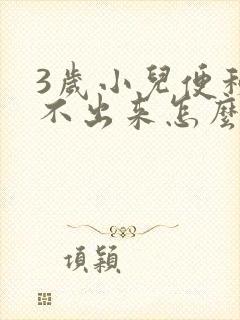 3歲小兒便秘
不出來怎麼
項穎